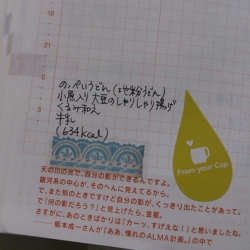 18
0
6
12
18
0
のっぺいうどん(地粉うどん)
小魚入り大豆のしゃりしゃり揚げ
くるみ和え
牛乳
(634kcal)
From your Cup
天の川の光で、自分の影ができるんですよ。
銀河系の中心が、そのへんに見えてるから。
で、また別のときですけど自分の影が、くっきり出たことがあって。
で「何の影だろう?」と見上げたら、金星。
さすがに、あのときばかりは「カーッ、すげえな!」と思いましたね。
──阪本成一さんが『ああ、憧れのALMA計画。』の中で